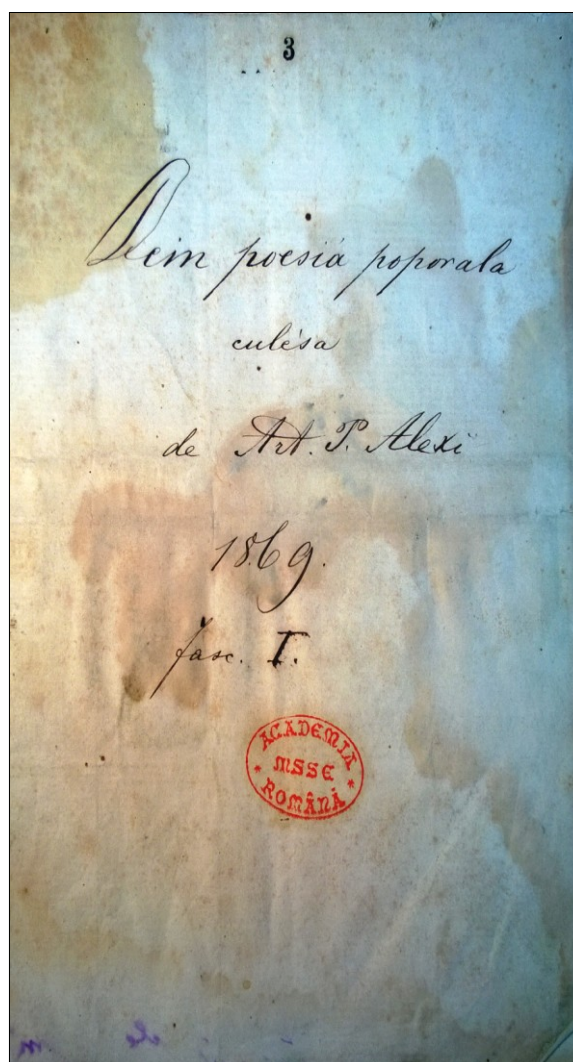 3
Dein poesiá poporala
culésa
de Art. P. Alexi
1869.
fasc. I.
ACADEMIA
MSSE
ROMÂNĂ